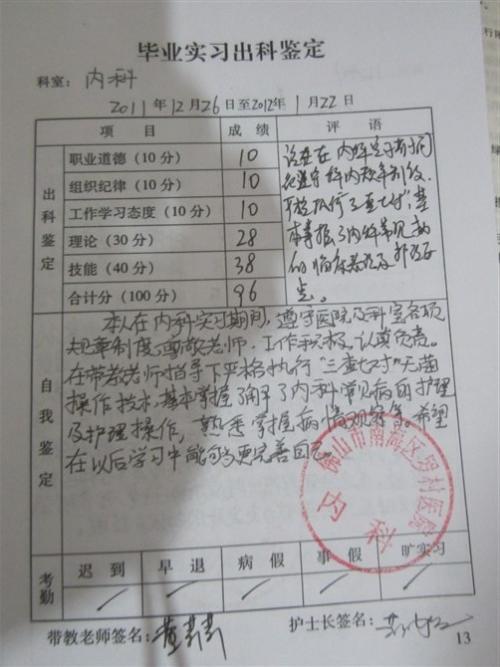 毕业实习出科鉴定
科室: 内科
2011年12月26日至2012年1月22日
项目 成绩 评语
出科鉴定
职业道德（10分） 10
组织纪律（10分） 10
工作学习态度（10分） 10
理论（30分） 28
技能（40分） 38
合计分（100分） 96
该生在内科实习期间
严格执行了三查七对，基
本掌握了内科常见病
的临床表现及护理
自我鉴定
本人在内科实习期间，遵守医院及科室各项
规章制度，尊敬老师，工作积极，认真负责。
在带教老师指导下严格执行“三查七对”无菌
操作技术，基本掌握了解了内科常见病的护理
及护理操作，熟悉掌握病情观察等。希望
在以后学习中能够更完善自己。
佛山市南海区 医院
内科
考勤
迟到 早退 病假 事假 旷实习
带教老师签名: 护士长签名:
13